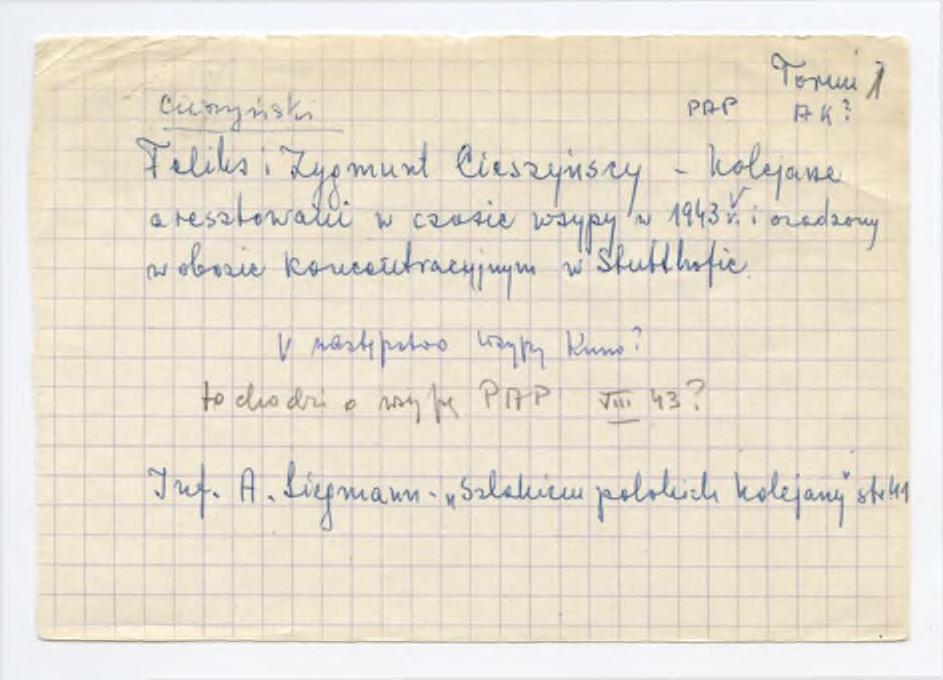 Toruń 1
Cieszyński PAP AK?
Feliks i Zygmunt Cieszyńscy - kolejarze
aresztowani w czasie wsypy w 1943 r. i osadzony
w obozie koncentracyjnym w Stutthofie.
V następstwo wsypy Kuno?
to chodzi o wsypę PAP VIII 43?
Inf. A. Siegmann - „Szlakiem polskich kolejarzy" str 41